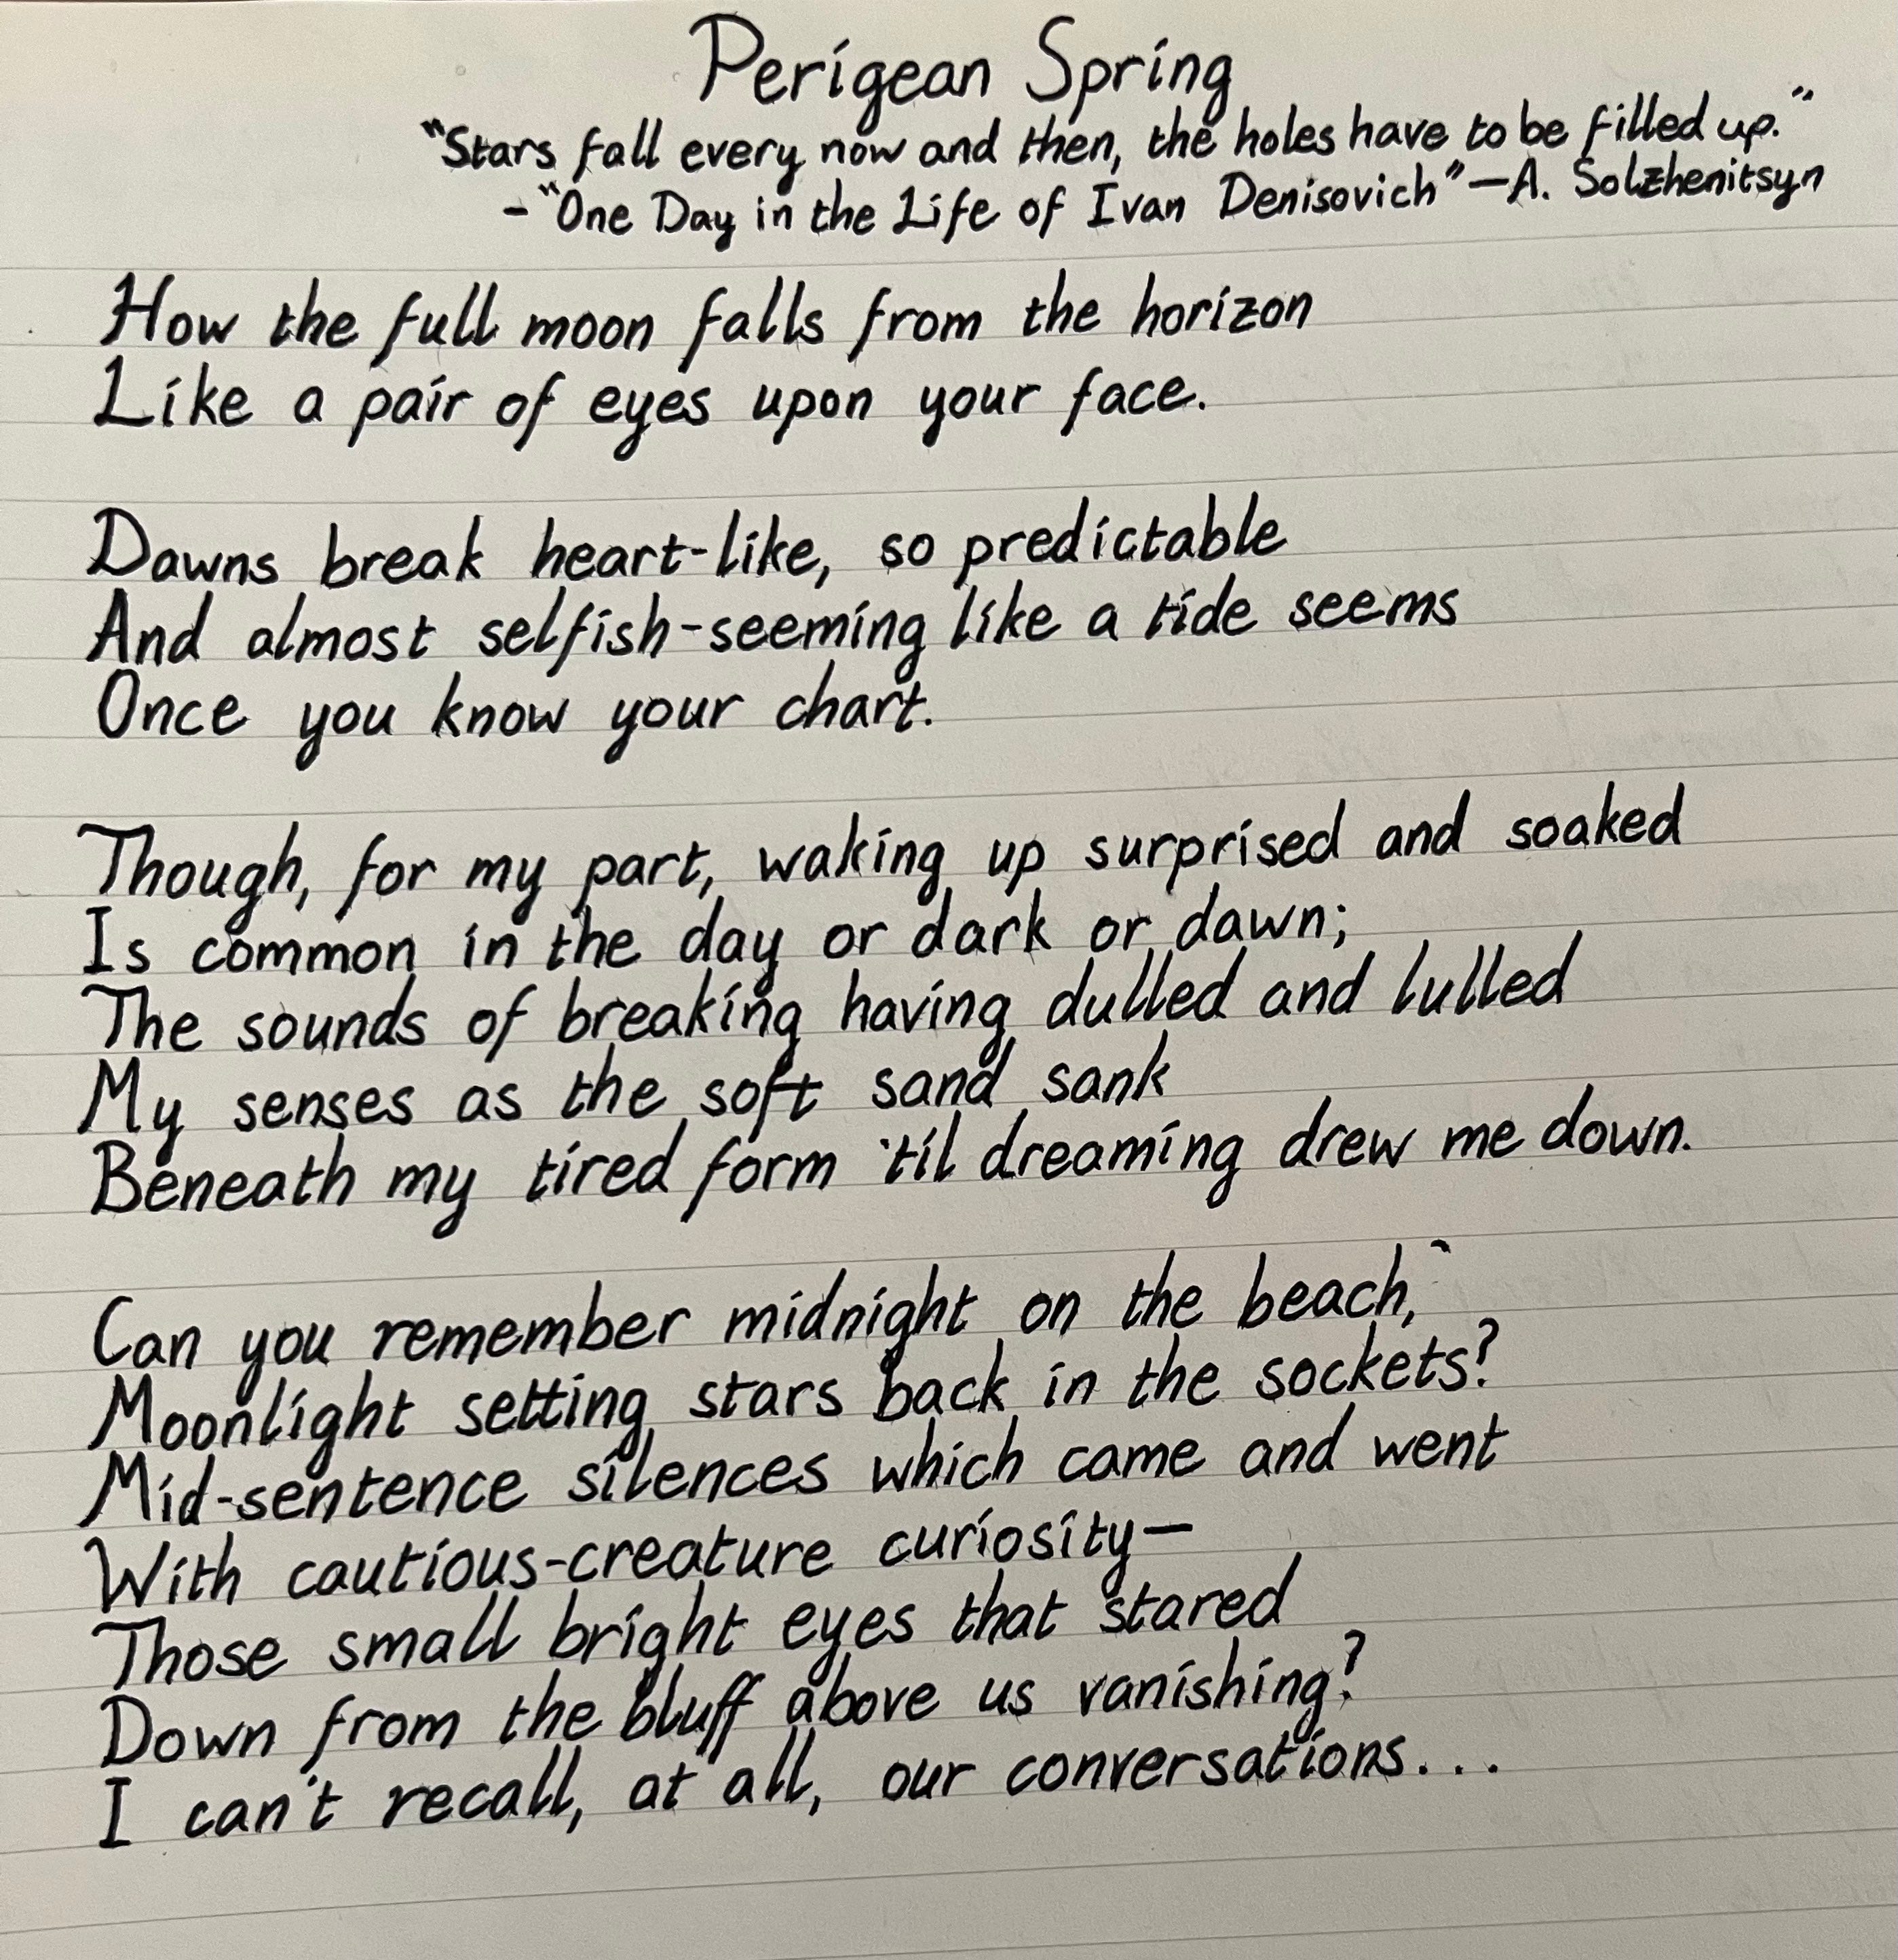 Perigean Spring
"Stars fall every now and then, the holes have to be filled up."
-"One Day in the Life of Ivan Denisovich"—A. Solzhenitsyn
How the full moon falls from the horizon
Like a pair of eyes upon your face.
Dawns break heart-like, so predictable
And almost selfish-seeming like a tide seems
Once you know your chart.
Though, for my part, waking up surprised and soaked
Is common in the day or dark or dawn;
The sounds of breaking having dulled and lulled
My senses as the soft sand sank
Beneath my tired form 'til dreaming drew me down.
Can you remember midnight on the beach,
Moonlight setting stars back in the sockets?
Mid-sentence silences which came and went
With cautious-creature curiosity—
Those small bright eyes that stared
Down from the bluff above us vanishing?
I can't recall, at all, our conversations...